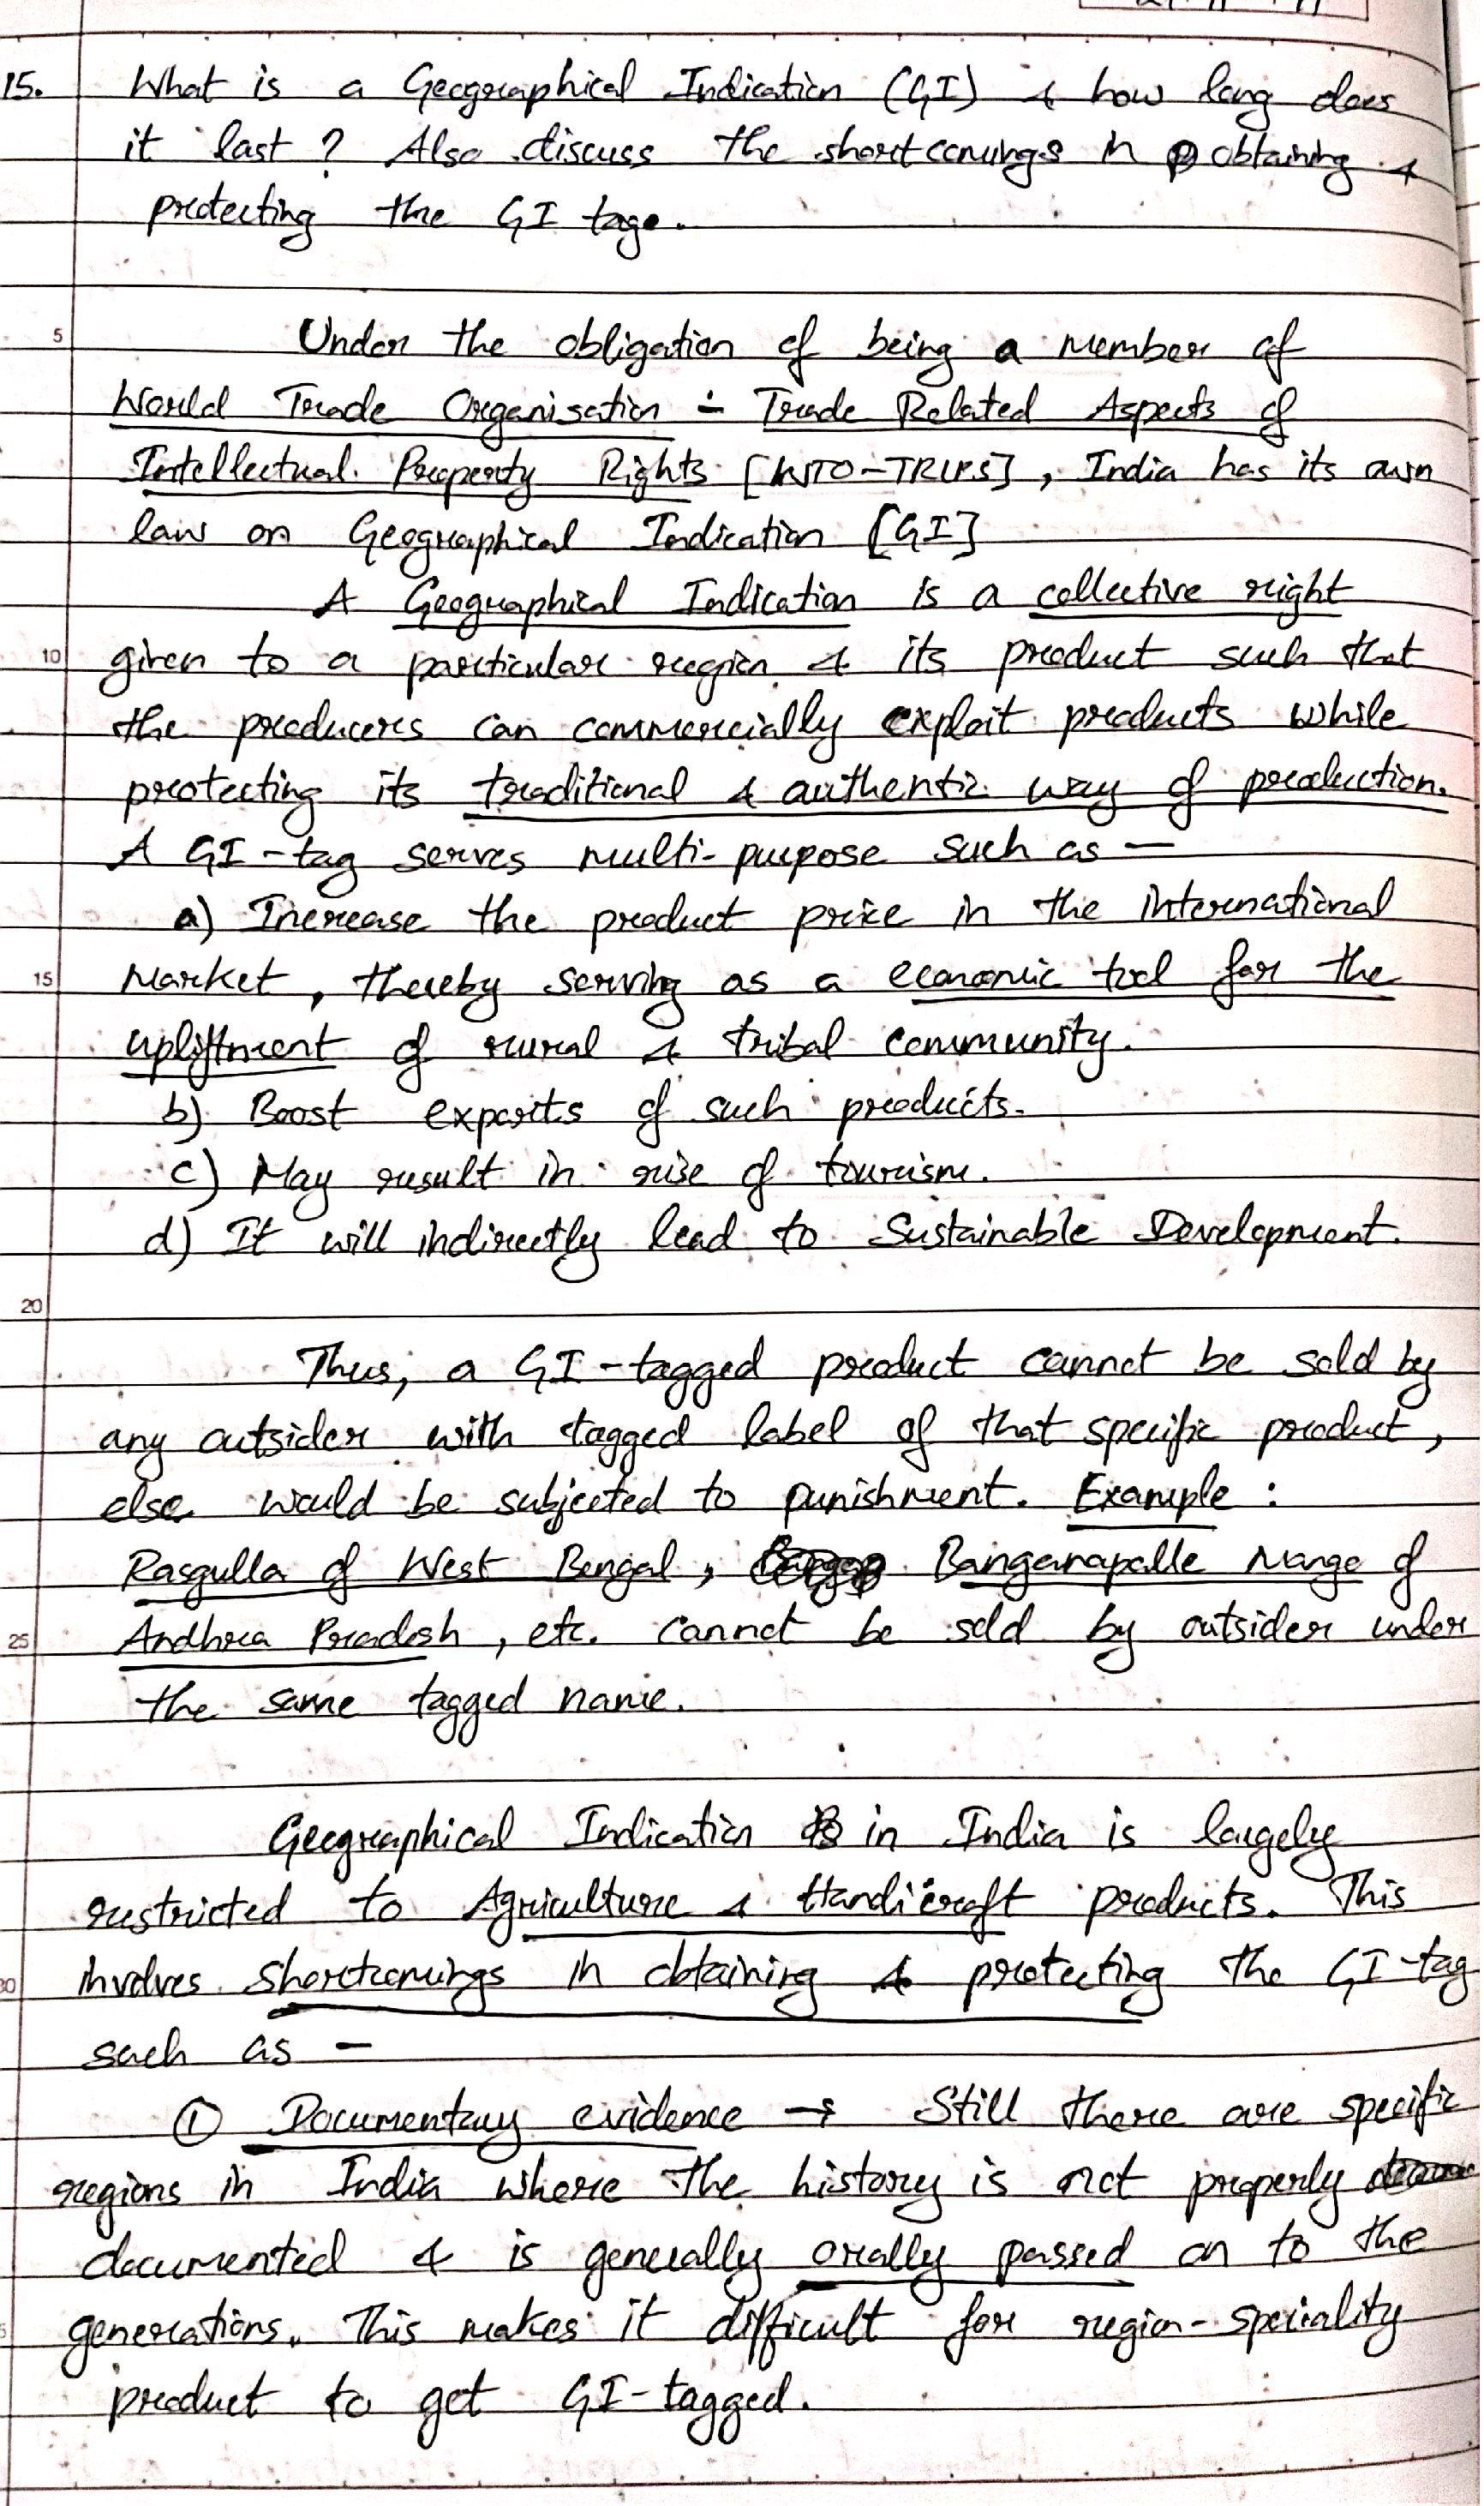 15. What is a Geographical Indication (GI) & how long does
it last? Also discuss the shortcomings in obtaining &
protecting the GI tage.
5 Under the obligation of being a member of
World Trade Organisation - Trade Related Aspects of
Intellectual Property Rights [WTO-TRIPS], India has its own
law on Geographical Indication [GI]
A Geographical Indication is a collective right
10 given to a particular region & its product such that
the producers can commercially exploit products while
protecting its traditional & authentic way of production.
A GI-tag serves multi-purpose such as –
a) Increase the product price in the international
15 market, thereby serving as a economic tool for the
upliftment of rural & tribal community.
b) Boost exports of such products.
c) May result in rise of tourism.
d) It will indirectly lead to Sustainable Development.
20
Thus, a GI-tagged product cannot be sold by
any outsider with tagged label of that specific product,
else would be subjected to punishment. Example :
Rasgulla of West Bengal, Banganapalle Mango of
25 Andhra Pradesh, etc. cannot be sold by outsider under
the same tagged name.
Geographical Indication in India is largely
restricted to Agriculture & Handicraft products. This
30 involves shortcomings in obtaining & protecting the GI-tag
such as –
① Documentary evidence → Still there are specific
regions in India where the history is not properly
documented & is generally orally passed on to the
generations. This makes it difficult for region-speciality
product to get GI-tagged.